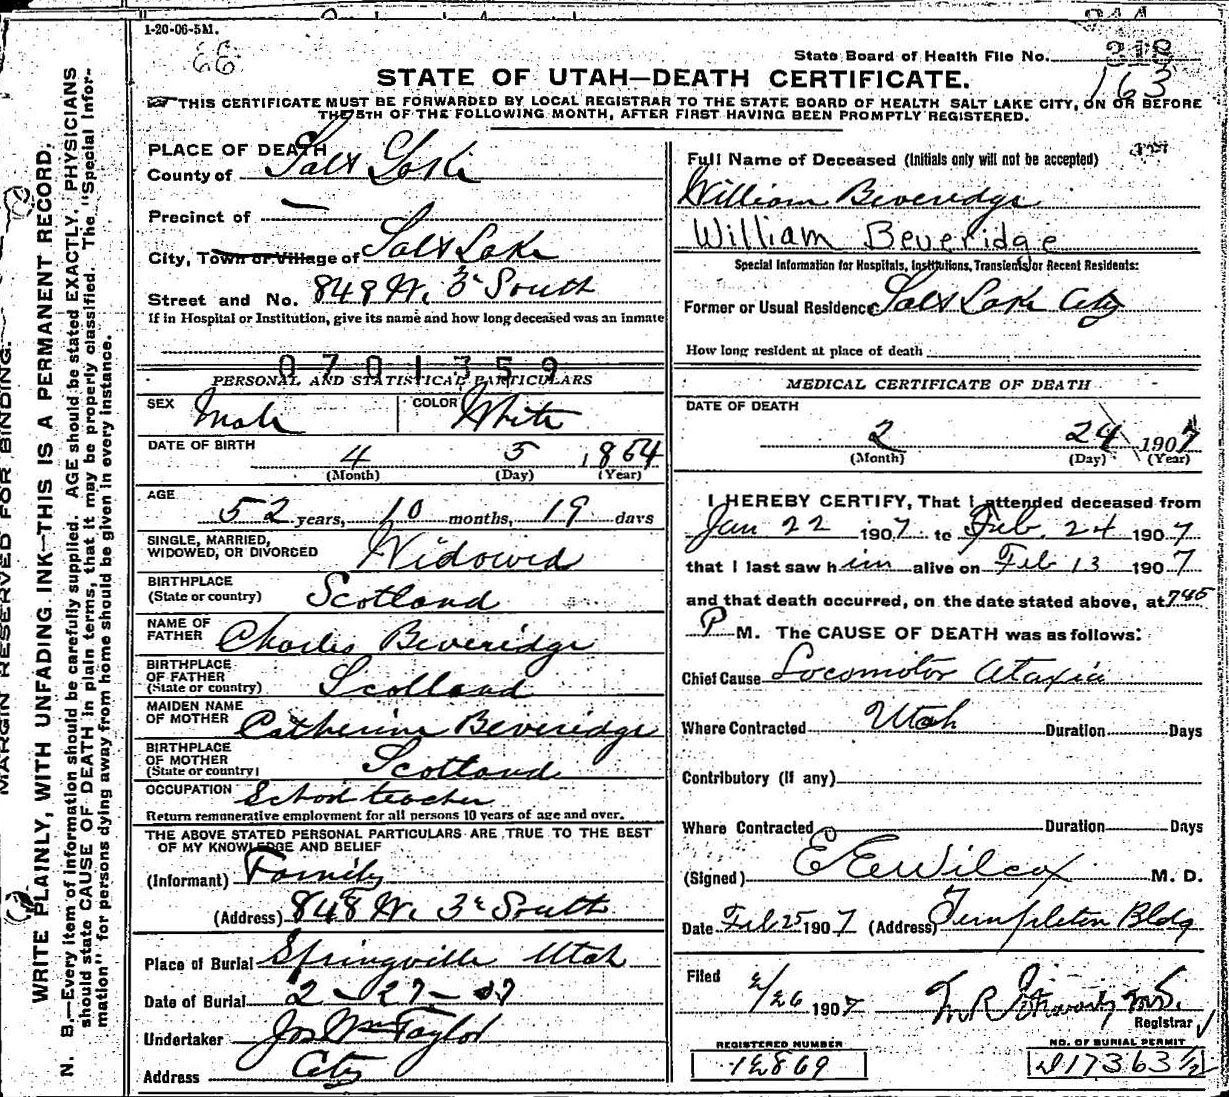 1-20-06-5M.
State Board of Health File No. 318
163
STATE OF UTAH—DEATH CERTIFICATE.
THIS CERTIFICATE MUST BE FORWARDED BY LOCAL REGISTRAR TO THE STATE BOARD OF HEALTH SALT LAKE CITY, ON OR BEFORE
THE 5TH OF THE FOLLOWING MONTH, AFTER FIRST HAVING BEEN PROMPTLY REGISTERED.
PLACE OF DEATH
County of Salt Lake
Precinct of —
City, Town or Village of Salt Lake
Street and No. 848 W. 3r South
If in Hospital or Institution, give its name and how long deceased was an inmate
0701359
PERSONAL AND STATISTICAL PARTICULARS
SEX Male COLOR White
DATE OF BIRTH
4 5 1854
(Month) (Day) (Year)
AGE
52 years, 10 months, 19 days
SINGLE, MARRIED,
WIDOWED, OR DIVORCED Widowed
BIRTHPLACE
(State or country) Scotland
NAME OF
FATHER Charles Beveridge
BIRTHPLACE
OF FATHER
(State or country) Scotland
MAIDEN NAME
OF MOTHER Catherine Beveridge
BIRTHPLACE
OF MOTHER
(State or country) Scotland
OCCUPATION School teacher
Return remunerative employment for all persons 10 years of age and over.
THE ABOVE STATED PERSONAL PARTICULARS ARE TRUE TO THE BEST
OF MY KNOWLEDGE AND BELIEF
(Informant) Family
(Address) 848 W. 3r South
Place of Burial Springville Utah
Date of Burial 2-27-07
Undertaker Jos Wm Taylor
Address City
Full Name of Deceased (Initials only will not be accepted)
William Beveridge
William Beveridge
Special Information for Hospitals, Institutions, Transients or Recent Residents:
Former or Usual Residence Salt Lake City
How long resident at place of death
MEDICAL CERTIFICATE OF DEATH
DATE OF DEATH
2 24 1907
(Month) (Day) (Year)
I HEREBY CERTIFY, That I attended deceased from
Jan 22 1907 to Feb. 24 1907
that I last saw him alive on Feb 13 1907
and that death occurred, on the date stated above, at 745
P M. The CAUSE OF DEATH was as follows:
Chief Cause Locomotor Ataxia
Where Contracted Utah Duration Days
Contributory (If any)
Where Contracted Duration Days
(Signed) E E Wilcox M. D.
Date Feb 25 1907 (Address) Templeton Bldg
Filed 2/26 1907
Registrar
REGISTERED NUMBER
NO. OF BURIAL PERMIT
12869
D17363 1/2
MARGIN RESERVED FOR BINDING.
WRITE PLAINLY, WITH UNFADING INK—THIS IS A PERMANENT RECORD.
N. B.—Every item of information should be carefully supplied. AGE should be stated EXACTLY. PHYSICIANS
should state CAUSE OF DEATH in plain terms, that it may be properly classified. The "Special Infor-
mation" for persons dying away from home should be given in every instance.